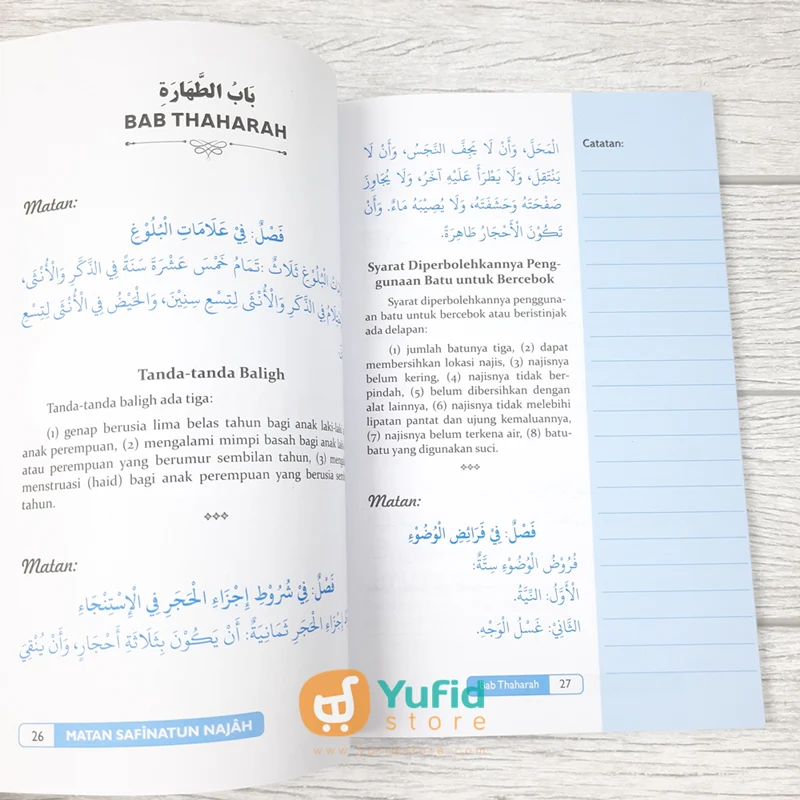 بَابُ الطَّهَارَةِ
BAB THAHARAH
Matan:
فَصْلٌ: فِيْ عَلَامَاتِ الْبُلُوْغِ
الْبُلُوْغِ ثَلَاثٌ: تَمَامُ خَمْسَ عَشْرَةَ سَنَةً فِي الذَّكَرِ وَالْأُنْثَى،
فِي الذَّكَرِ وَالْأُنْثَى لِتِسْعِ سِنِيْنَ، وَالْحَيْضُ فِي الْأُنْثَى لِتِسْعِ
Tanda-tanda Baligh
Tanda-tanda baligh ada tiga:
(1) genap berusia lima belas tahun bagi anak
anak perempuan, (2) mengalami mimpi basah bagi anak
atau perempuan yang berumur sembilan tahun, (3)
menstruasi (haid) bagi anak perempuan yang berusia
tahun.
Matan:
فَصْلٌ: فِيْ شُرُوْطِ إِجْزَاءِ الْحَجَرِ فِي الْإِسْتِنْجَاءِ
إِجْزَاءِ الْحَجَرِ ثَمَانِيَةٌ: أَنْ يَكُوْنَ بِثَلَاثَةِ أَحْجَارٍ، وَأَنْ يُنْقِيَ
26 MATAN SAFÎNATUN NAJÂH
الْمَحَلَّ، وَأَنْ لَا يَجِفَّ النَّجَسُ، وَأَنْ لَا
يَنْتَقِلَ، وَلَا يَطْرَأَ عَلَيْهِ آخَرُ، وَلَا يُجَاوِزَ
صَفْحَتَهُ وَحَشَفَتَهُ، وَلَا يُصِيْبَهُ مَاءٌ. وَأَنْ
تَكُوْنَ الْأَحْجَارُ طَاهِرَةً.
Syarat Diperbolehkannya Peng-
gunaan Batu untuk Bercebok
Syarat diperbolehkannya pengguna-
an batu untuk bercebok atau beristinjak
ada delapan:
(1) jumlah batunya tiga, (2) dapat
membersihkan lokasi najis, (3) najisnya
belum kering, (4) najisnya tidak ber-
pindah, (5) belum dibersihkan dengan
alat lainnya, (6) najisnya tidak melebihi
lipatan pantat dan ujung kemaluannya,
(7) najisnya belum terkena air, (8) batu-
batu yang digunakan suci.
Matan:
فَصْلٌ: فِيْ فَرَائِضِ الْوُضُوْءِ
فُرُوْضُ الْوُضُوْءِ سِتَّةٌ:
الْأَوَّلُ: النِّيَّةُ.
الثَّانِيْ: غَسْلُ الْوَجْهِ.
Bab Thaharah 27
Catatan:
Yufid
store
www.yufidstore.com